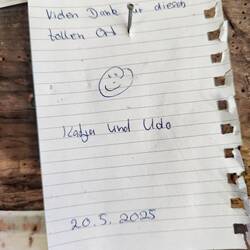 Vielen Dank für diesen
tollen Ort
Katja und Udo
20.5.2025